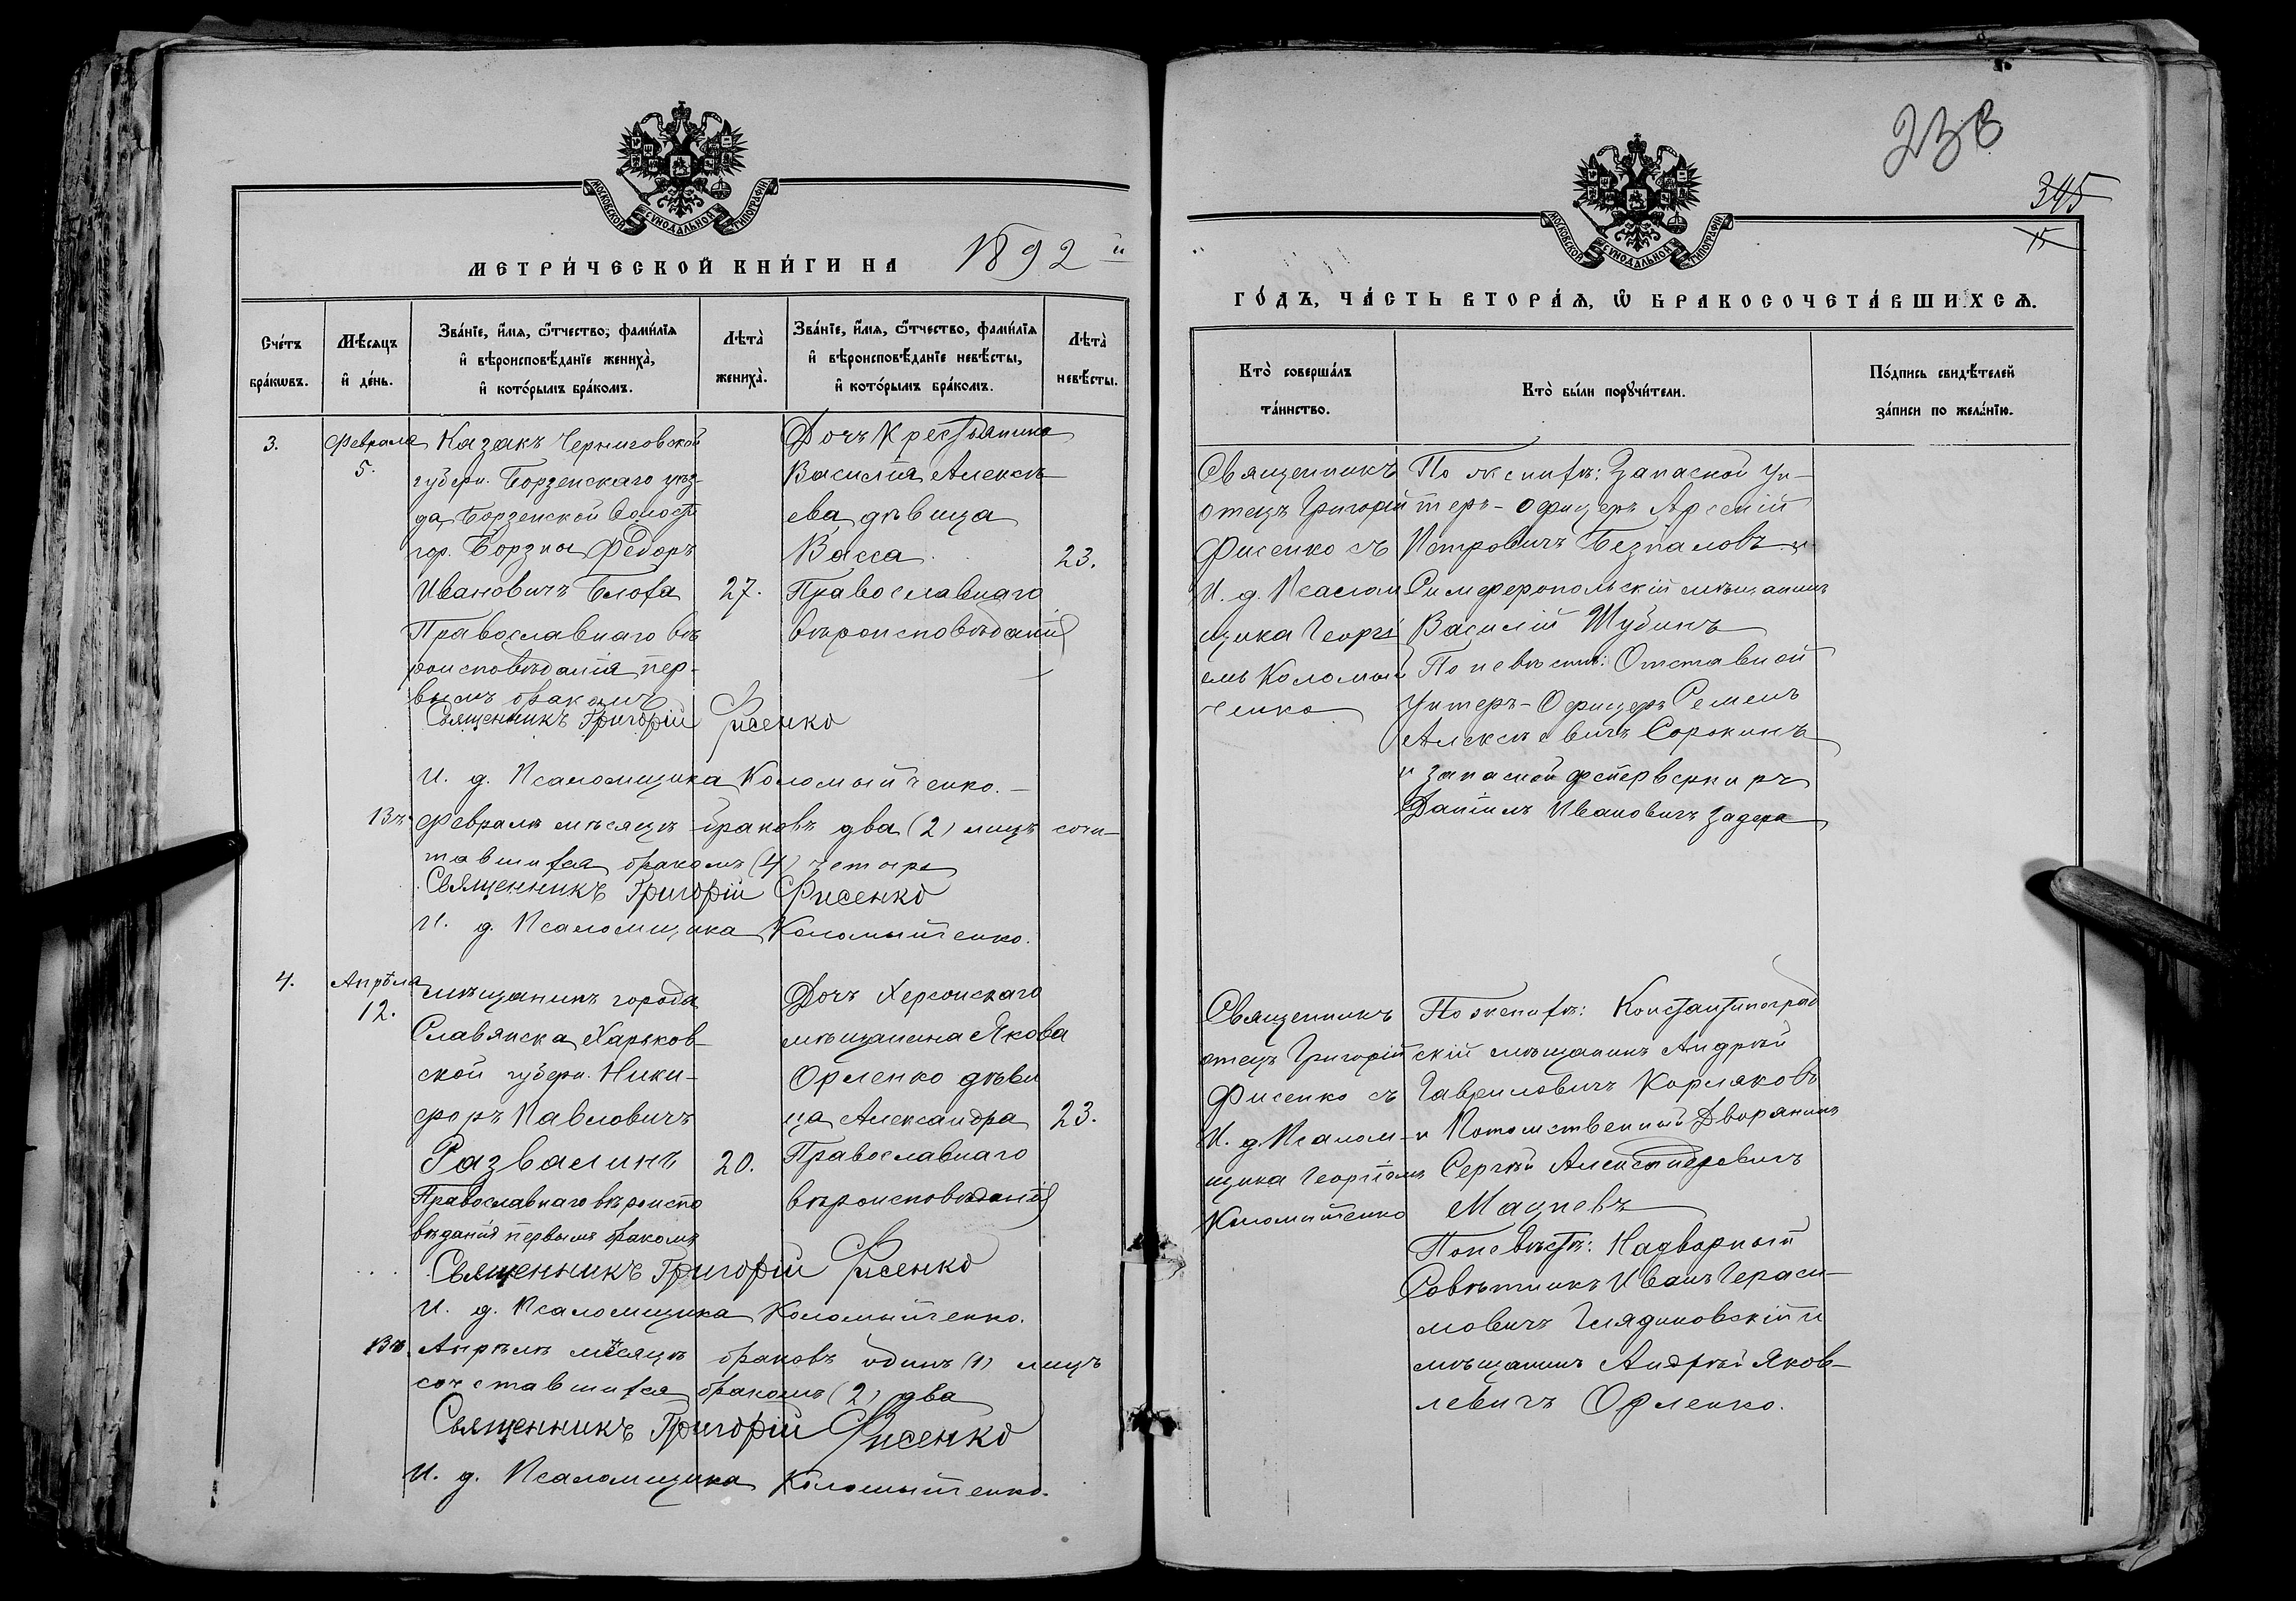 МОСКОВСКОЙ СУНОДАЛЬНОЙ ТИПОГРАФІИ
МЕТРИ́ЧЕСКОЙ КНИ́ГИ НА 1892 й
Сче́тъ бра́кѡвъ.
Мѣ́сяцъ и҆ де́нь.
Зва́нїе, и҆́мя, ѻ҆́тчество, фами́лїя
и҆ вѣроисповѣ́данїе жениха̀,
и҆ кото́рымъ бра́комъ.
Лѣта̀ жениха̀.
Зва́нїе, и҆́мя, ѻ҆́тчество, фами́лїя
и҆ вѣроисповѣ́данїе невѣ́сты,
и҆ кото́рымъ бра́комъ.
Лѣта̀ невѣ́сты.
3.
Февраля
5.
Казакъ Черниговской
губерн. Борзенскаго уѣз-
да, Борзенской волости
гор. Борзны Федоръ
Ивановичъ Блоха
Православнаго вѣ
роисповѣданія пер-
вымъ бракомъ
27.
Дочь Крестьянина
Василія Алексѣ-
ева дѣвица
Васса
Православнаго
вѣроисповѣданія
23.
Священникъ Григорій Фисенко
И. д. Псаломщика Коломыйченко.
Въ Февралѣ мѣсяцѣ браковъ два (2) лицъ соче-
тавшихся бракомъ (4) четыре
Священникъ Григорій Фисенко
И. д. Псаломщика Коломыйченко.
4.
Апрѣля
12.
мѣщанинъ города
Славянска Харьков-
ской губерн. Ники-
форъ Павловичъ
Развалинъ
Православнаго вѣроиспо
вѣданія первымъ бракомъ
20.
Дочь Херсонскаго
мѣщанина Якова
Орленко дѣви
ца Александра
Православнаго
вѣроисповѣданія
23.
Священникъ Григорій Фисенко
И. д. Псаломщика Коломыйченко.
Въ Апрѣлѣ мѣсяцѣ браковъ одинъ (1) лицъ
сочетавшихся бракомъ (2) два
Священникъ Григорій Фисенко
И. д. Псаломщика Коломыйченко.
238
345
15
МОСКОВСКОЙ СУНОДАЛЬНОЙ ТИПОГРАФІИ
ГО́ДЪ, ЧА́СТЬ ВТОРА́Я, Ѡ҆ БРАКОСОЧЕТА́ВШИХСЯ.
Кто̀ соверша́лъ
та́инство.
Кто̀ бы́ли порꙋчи́тели.
По́дпись свидѣ́телей
за́писи по жела́нїю.
Священникъ
отецъ Григорій
Фисенко съ
И. д. Псалом
щика Георгі
емъ Коломый
ченко
По женихѣ: Запасной Ун-
теръ-Офицеръ Арсеній
Петровичъ Безпаловъ и
Симферопольскій мѣщанинъ
Василій Шубинъ
По невѣстѣ: Отставной
Унтеръ-Офицеръ Семенъ
Алексѣевичъ Сорокинъ
и Запасной фейерверкеръ
Даніилъ Ивановичъ Задера
Священникъ
отецъ Григорій
Фисенко съ
И. д. Псалом-
щика Георгіемъ
Коломыйченко
По женихѣ: Константиноград
скій мѣщанинъ Андрей
Гавриловичъ Корляковъ
и Потомственный Дворянинъ
Сергѣй Александровичъ
По невѣстѣ: Надворный
Совѣтникъ Иванъ Гераси-
мовичъ Глядиковскій и
мѣщанинъ Андрей Яков-
левичъ Орленко.